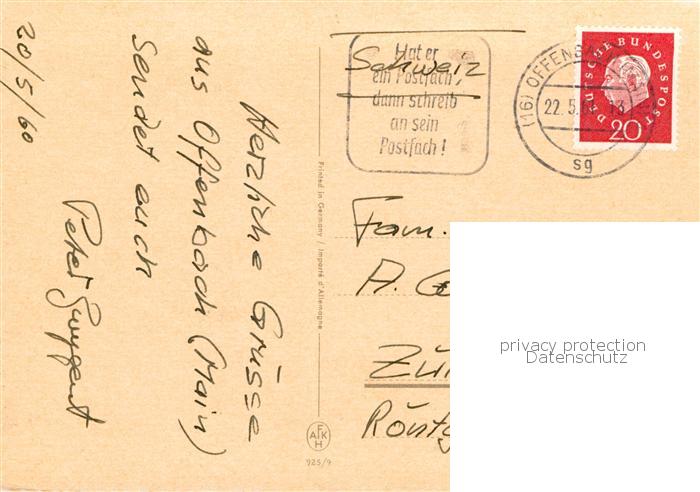 20/5/60
Herzliche Grüsse
aus Offenbach (Main)
sendet euch
Peter
Printed in Germany / Importé d'Allemagne
AFKH
925/9
Schweiz
Hat er
ein Postfach,
dann schreib
an sein
Postfach!
(16) OFFENB
22.5.6 13
sg
DEUTSCHE BUNDESPOST
20
Fam.
A.
privacy protection
Datenschutz